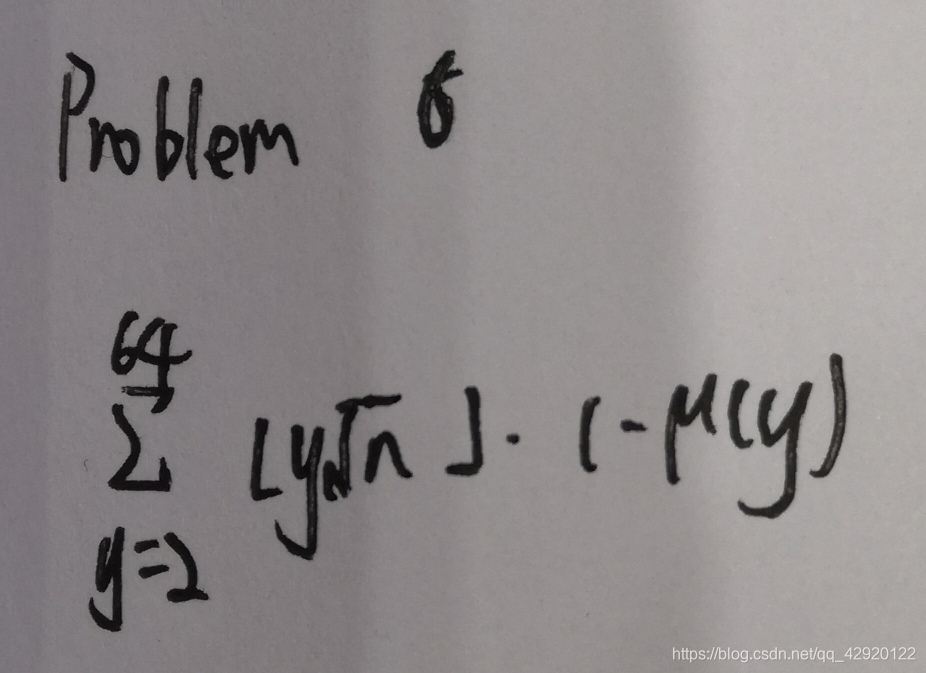 Problem 6
64
Σ [y√n]·(-μ(y)
y=2
https://blog.csdn.net/qq_42920122